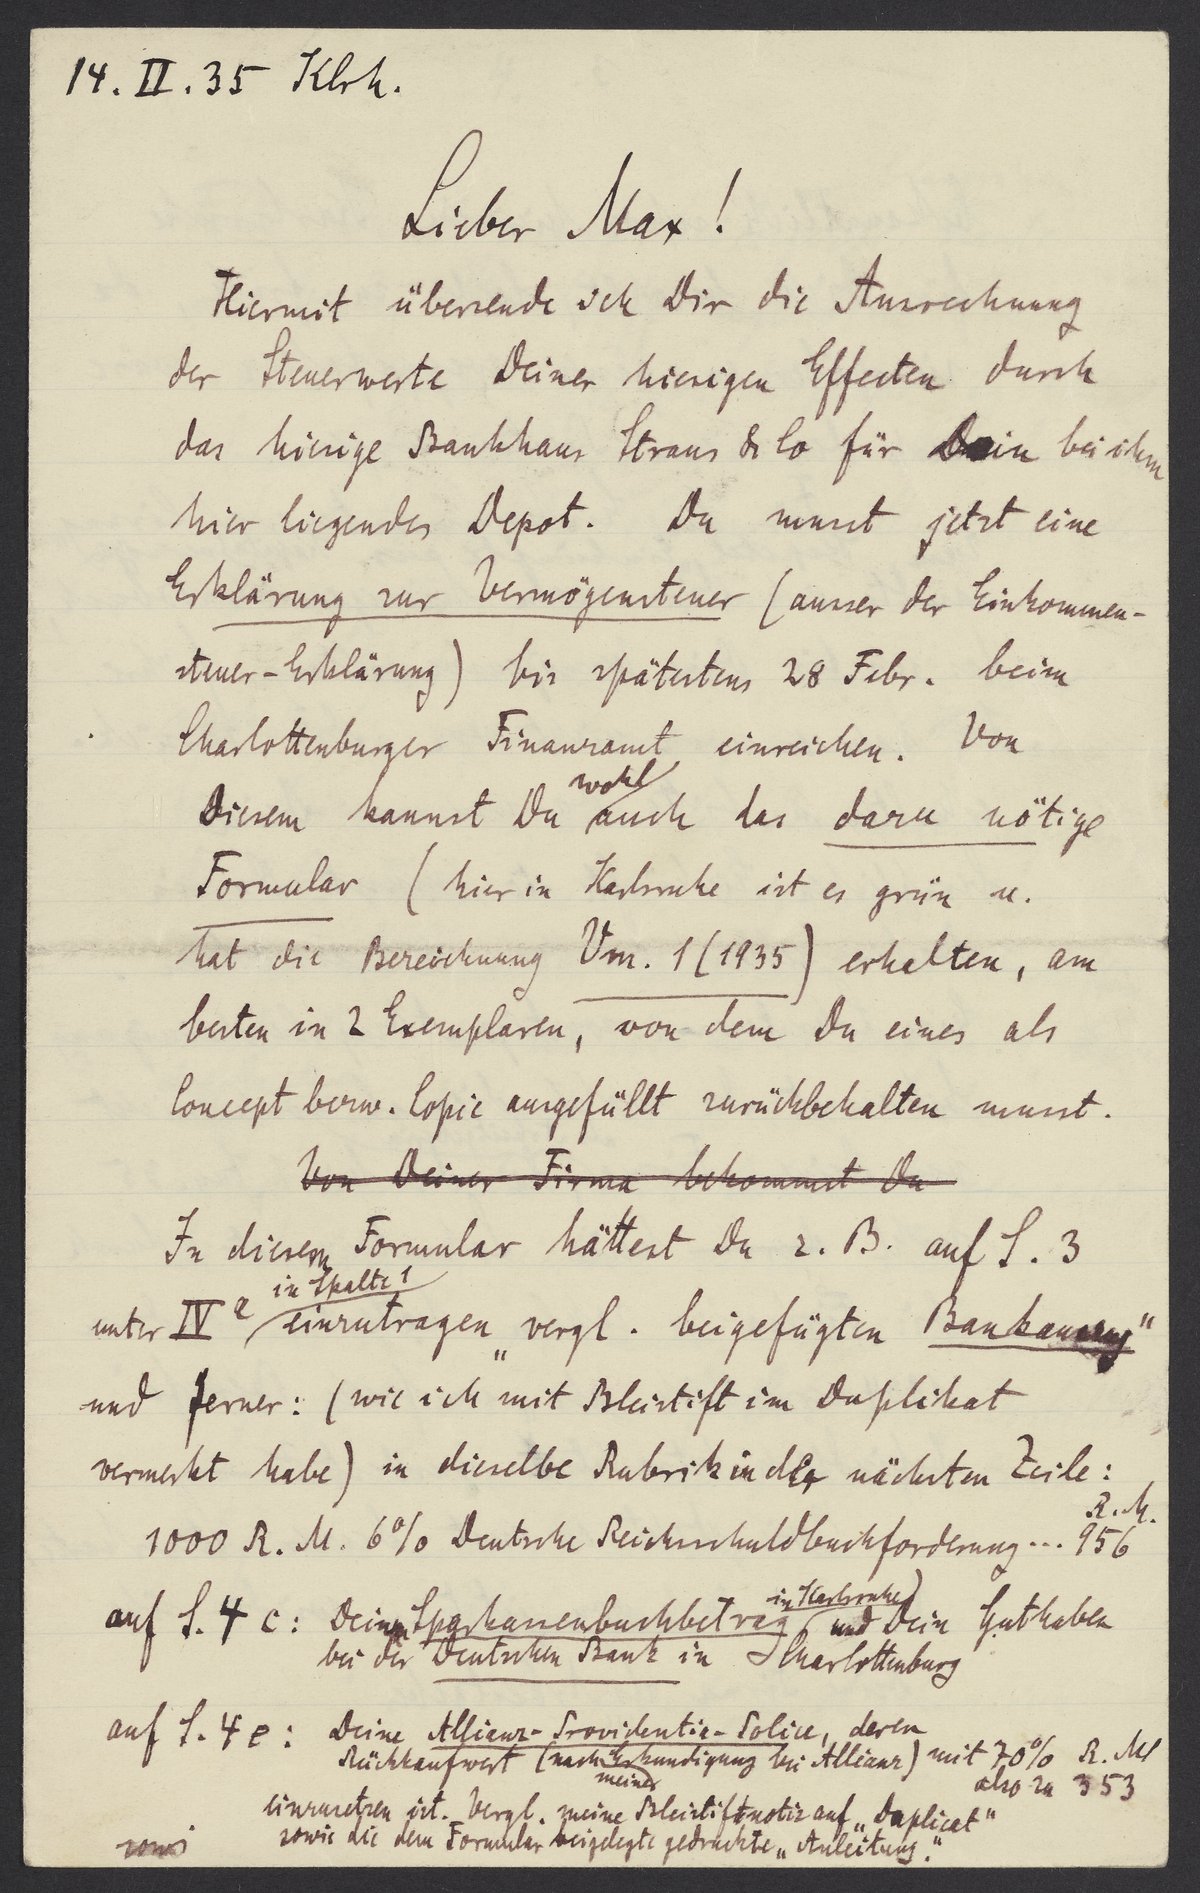 14. II. 35 Klrh.
Lieber Max!
Hiermit übersende ich Dir die Ausrechnung
der Steuerwerte Deiner hiesigen Effecten durch
das hiesige Bankhaus Straus & Co für Dein bei ihm
hier liegendes Depot. Du musst jetzt eine
Erklärung zur Vermögensteuer (ausser der Einkommen-
steuer-Erklärung) bis spätestens 28 Febr. beim
Charlottenburger Finanzamt einreichen. Von
wohl
Diesem kannst Du auch das dazu nötige
Formular (hier in Karlsruhe ist es grün u.
hat die Bezeichnung Vm. 1 (1935) erhalten, am
besten in 2 Exemplaren, von dem Du eines als
Concept bezw. Copie ausgefüllt zurückbehalten musst.
Von Deiner Firma bekommst Du
In diesem Formular hättest Du z. B. auf S. 3
in Spalte 1
unter IV einzutragen „vergl. beigefügten Bankauszug"
und ferner: (wie ich mit Bleistift im Duplikat
vermerkt habe) in dieselbe Rubrik in der nächsten Zeile:
R. M.
1000 R. M. 6% Deutsche Reichsschuldbuchforderung... 956
in Karlsruhe
auf S. 4 c: Deinen Sparkassenbuchbetrag und Dein Guthaben
bei der Deutschen Bank in Charlottenburg
auf S. 4 e: Deine Allianz-Providentia-Police, deren
Rückkaufwert (nach Erkundigung bei Allianz) mit 70% R. M
meiner
also zu 353
einzusetzen ist. Vergl. meine Bleistiftnotiz auf „Duplicat"
sowie die dem Formular beigelegte gedruckte „Anleitung."
sowi